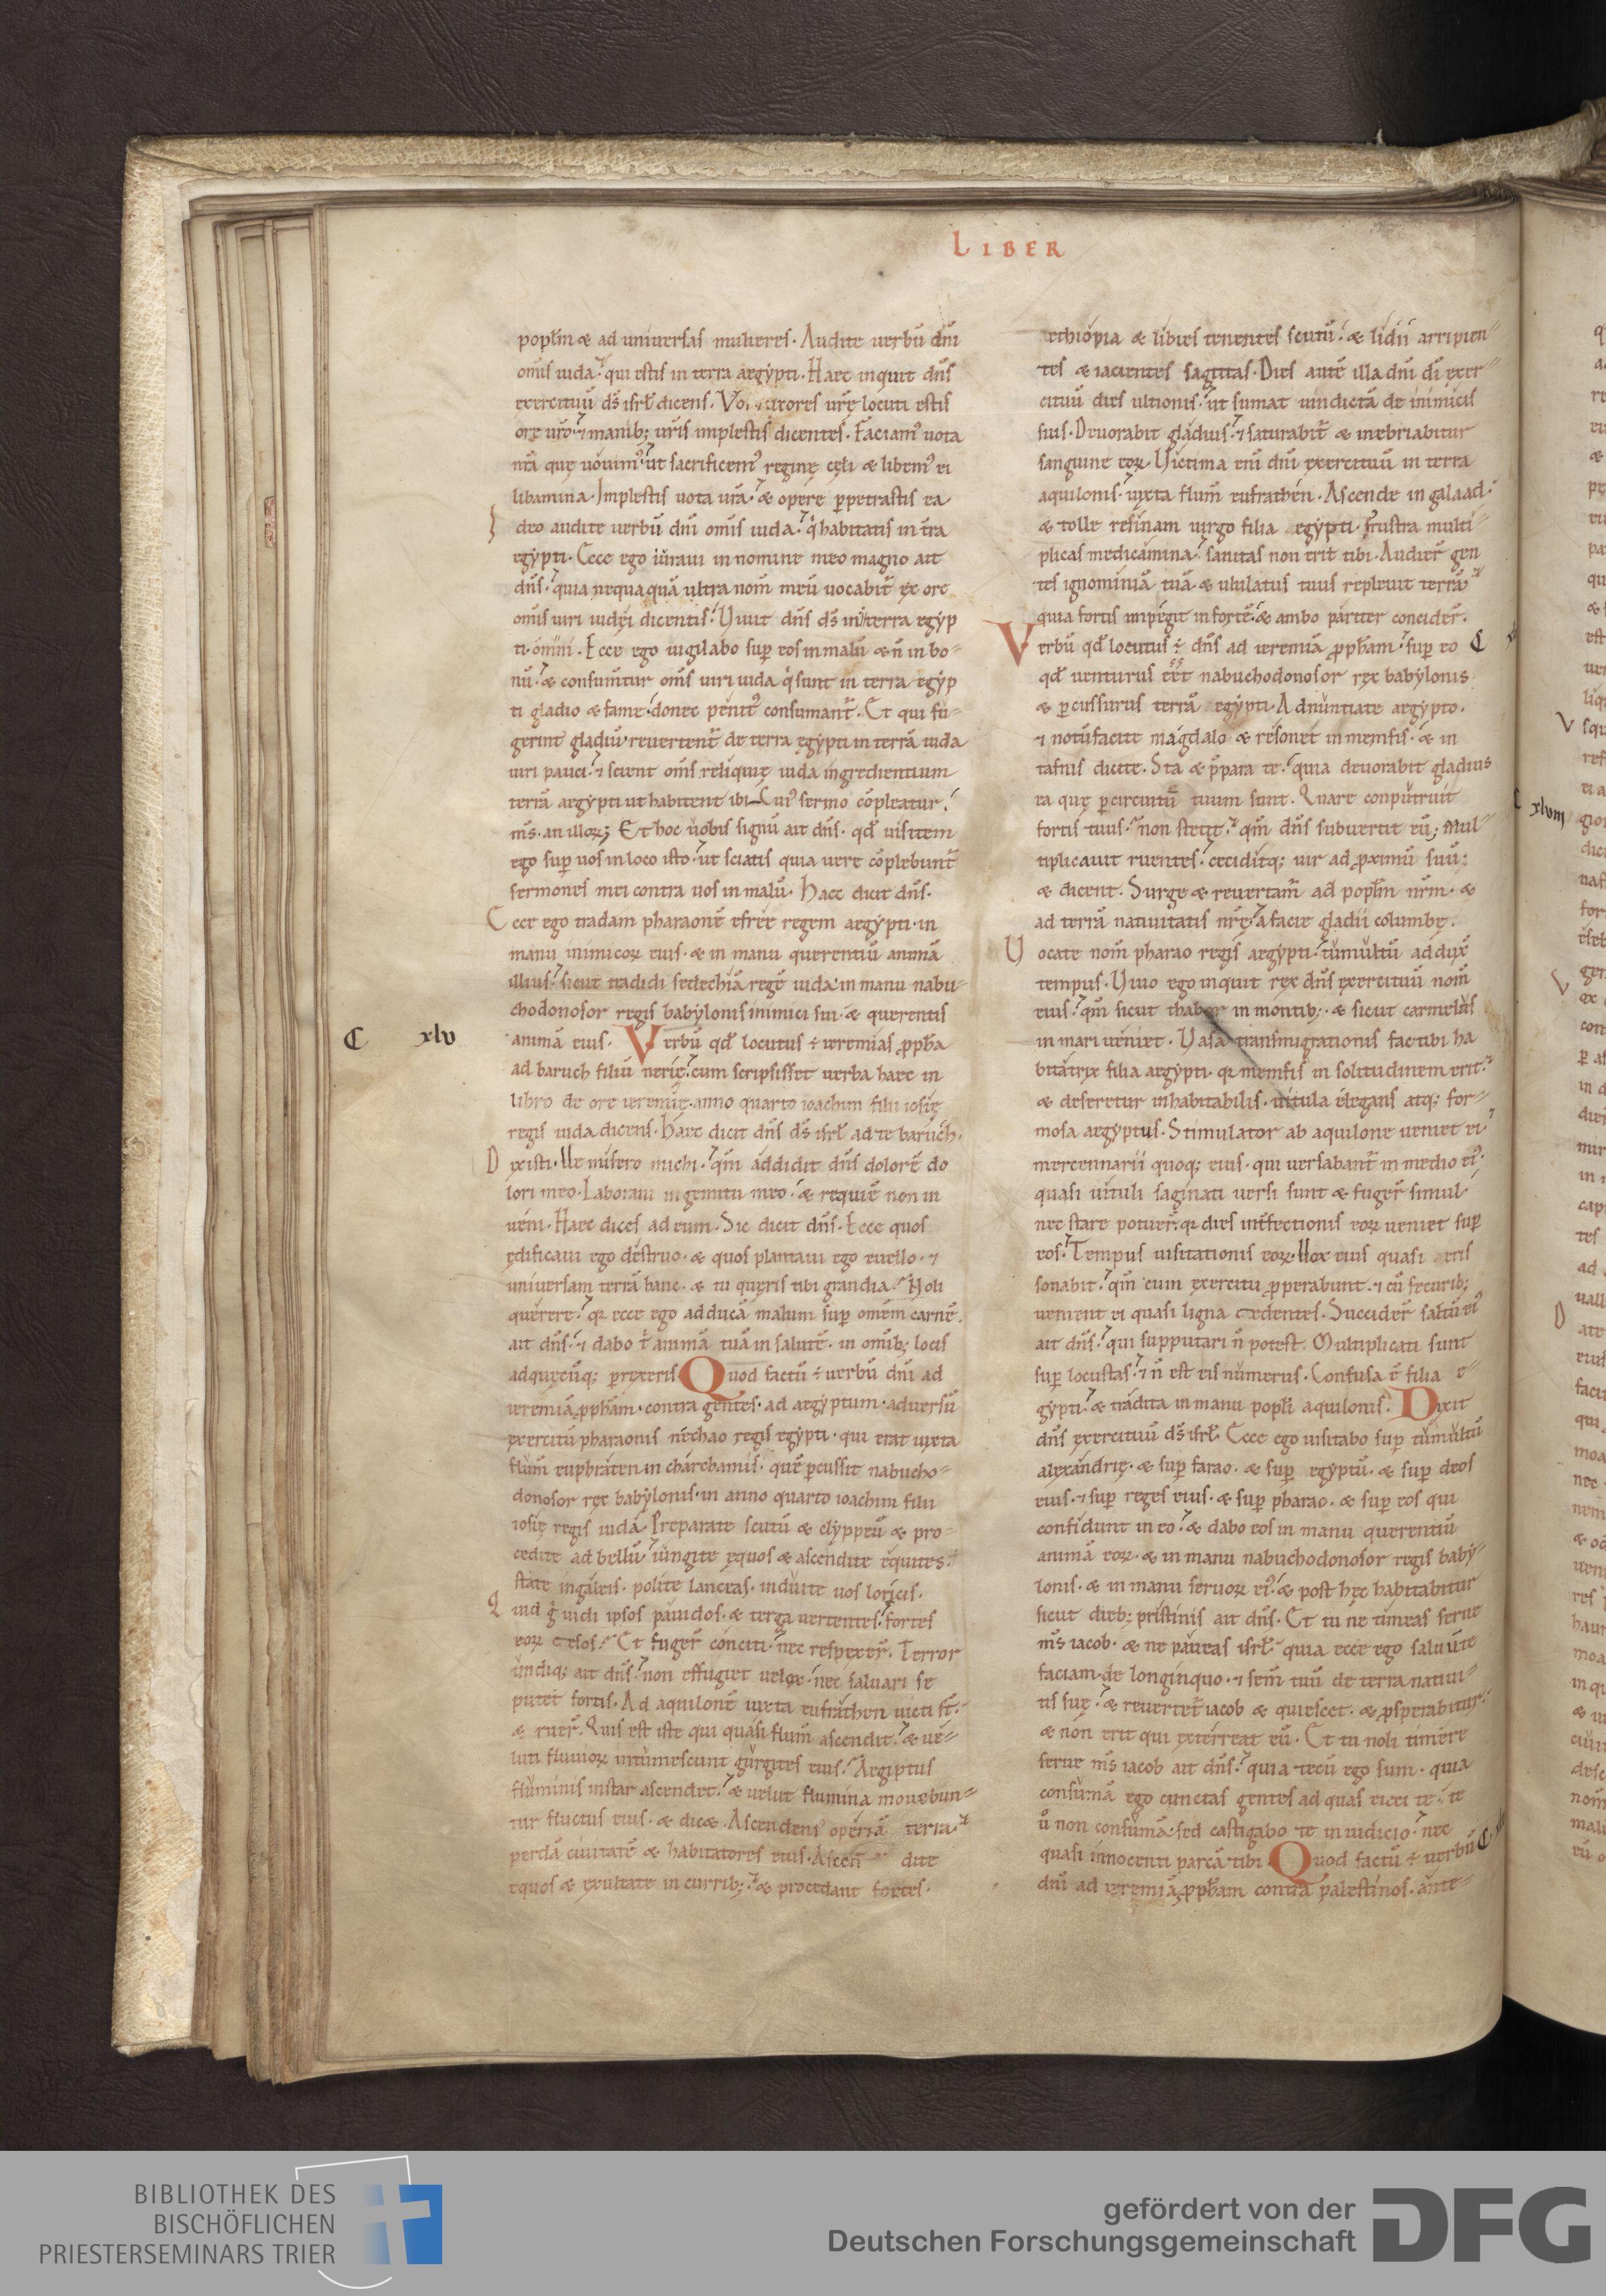 LIBER
popl̄m & ad uniuersas mulieres. Audite uerbū dn̄i
om̄is iuda qui estis in terra aegypti. Haec inquit dn̄s
exercituū ds̄ isrł dicens. Vos uxores ur̄ę locuti estis
ore ur̄o ⁊ manib; ur̄is implestis dicentes. Faciamꝰ uota
nr̄a quę uouimꝰ ut sacrificemꝰ reginę cęli & libemꝰ ei
libamina. Implestis uota ur̄a & opere ꝑpetrastis ea
I deo audite uerbū dn̄i om̄is iuda q̇ habitatis in tr̄a
egypti. Ecce ego iuraui in nomine meo magno ait
dn̄s quia nequaquā ultra nom̄ meū uocabit̄ ex ore
om̄is uiri iudęi dicentis. Viuit dn̄s ds̄ in terra egyp
ti omni. Ecce ego uigilabo sup̄ eos in malū & n̄ in bo-
nū & consum̄tur om̄s uiri iuda q̇ sunt in terra egyp
ti gladio & fame donec penitꝰ consumant̄. Et qui fu-
gerint gladiū reuertent̄ de terra egypti in terrā iuda
uiri pauci ⁊ scient om̄s reliquię iuda ingredientium
terrā aegypti ut habitent ibi cuiꝰ sermo cōpleatur
ms̄. an illoꝝ; Et hoc uobis signū ait dn̄s. qd̄ uisitem
ego sup̄ uos in loco isto ut sciatis quia uere cōplebunt̄
sermones mei contra uos in malū. Haec dicit dn̄s.
E cce ego tradam pharaonē efree regem aegypti in
manu inimicoꝝ eius & in manu querentiū animā
illius sicut tradidi sedechiā regē iuda in manu nabu-
chodonosor regis babylonis inimici sui & querentis
C xlv
animā eius. Verbū qd̄ locutus ÷ ieremias ꝓpha
ad baruch filiū nerię cum scripsisset uerba haec in
libro de ore ieremię anno quarto ioachim filii iosię
regis iuda dicens. Haec dicit dn̄s ds̄ isrł ad te baruch.
D ixisti. Ue misero michi qm̄ addidit dn̄s dolorē do
lori meo. Laboraui in gemitu meo & requiē non in
ueni. Haec dices ad eum. Sic dicit dn̄s. Ecce quos
edificaui ego destruo. & quos plantaui ego euello. ⁊
uniuersam terrā hanc. & tu quęris tibi grandia Noli
querere qꝛ ecce ego adducā malum sup̄ omēm carnē.
ait dn̄s ⁊ dabo t̄ animā tuā in salutē. in om̄ib; locis
ad quęcūq; ꝑrexeris Quod factū ÷ uerbū dn̄i ad
ieremiā ꝓpham. contra gentes. ad aegyptum. aduersū
exercitū pharaonis nechao regis egypti. qui erat iuxta
flum̄ euphraten in charchamis. quē ꝑcussit nabucho-
donosor rex babylonis in anno quarto ioachim filii
iosię regis iuda. Preparate scutū & clyppeū & pro-
cedite ad bellū iungite equos & ascendite equites.
state in galeis. polite lanceas. induite uos loricis.
Q uid g̊ uidi ipsos pauidos. & terga uertentes fortes
eoꝝ cęsos Et fuger̄ conciti nec respexer̄. Terror
undiq; ait dn̄s non effugiet uelox nec saluari se
putet fortis. Ad aquilonē iuxta eufrathen uicti st̄.
& ruer̄. Quis est iste qui quasi flum̄ ascendit & ue-
luti fluuioꝝ intumescunt gurgites eius Aegiptus
fluminis instar ascendet & uelut flumina mouebun-
tur fluctus eius. & dic&. Ascendens operiā terrā
perdā ciuitatē & habitatores eius. Ascendite
equos & exultate in currib; & procedant fortes.
ethiopia & libies tenentes scutū & lidii arripien-
tes & iacientes sagittas. Dies autē illa dn̄i di̅ exer-
cituū dies ultionis ut sumat uindictā de inimicis
suis. Deuorabit gladius ⁊ saturabit̄ & inebriabitur
sanguine eoꝝ. Victima eni̅ dn̄i exercituū in terra
aquilonis iuxta flum̄ eufrathen. Ascende in galaad
& tolle resinam uirgo filia egypti. frustra multi-
plicas medicamina sanitas non erit tibi. Audier̄ gen
tes ignominiā tuā. & ululatus tuus repleuit terrā
quia fortis impegit in fortē & ambo pariter concider̄.
Verbū qd̄ locutus ÷ dn̄s ad ieremiā ꝓpham sup̄ eo C
qd̄ uenturus eēt nabuchodonosor rex babylonis
& ꝑcussurus terrā egypti. Adnuntiate aegypto.
⁊ notū facite magdalo & resonet in memfis. & in
tafnis dicite. Sta & p̄para te quia deuorabit gladius
ea quę ꝑ circuitū tuum sunt. Quare conputruit
fortis tuus non stetit qm̄ dn̄s subuertit eū; Mul-
tiplicauit ruentes ceciditq; uir ad ꝓximū suū;
& dicent. Surge & reuertam̄ ad popl̄m nr̄m. &
ad terrā natiuitatis nr̄ę a facie gladii columbę.
V ocate nom̄ pharao regis aegypti tumultū addux̄
tempus. Viuo ego inquit rex dn̄s exercituū nom̄
eius qm̄ sicut thabor in montib;. & sicut carmelus
in mari ueniet. Vasa transmigrationis fac tibi ha
bitatrix filia aegypti. qꝛ memfis in solitudinem erit
& deseretur inhabitabilis. uitula elegans atq; for-
mosa aegyptus. Stimulator ab aquilone ueniet ei
mercennarii quoq; eius. qui uersabant̄ in medio eiꝰ.
quasi uituli saginati uersi sunt & fuger̄ simul
nec stare potuer̄ qꝛ dies int̄fectionis eoꝝ ueniet sup̄
eos Tempus uisitationis eoꝝ. Uox eius quasi eris
sonabit qm̄ cum exercitu ꝓperabunt. ⁊ cū securib;
uenient ei quasi ligna cedentes. Succider̄ saltū eiꝰ
ait dn̄s qui supputari n̄ potest. Multiplicati sunt
sup̄ locustas ⁊ n̄ est eis numerus. Confusa ē filia e-
gypti & tradita in manu popłi aquilonis. Dixit
dn̄s exercituū ds̄ isrł. Ecce ego uisitabo sup̄ tumultū
alexandrię. & sup̄ farao. & sup̄ egyptū. & sup̄ deos
eius. ⁊ sup̄ reges eius. & sup̄ pharao. & sup̄ eos qui
confidunt in eo & dabo eos in manu querentiū
animā eoꝝ. & in manu nabuchodonosor regis baby-
lonis. & in manu seruoꝝ eiꝰ & post hęc habitabitur
sicut dieb; pristinis ait dn̄s. Et tu ne timeas serue
ms̄ iacob. & ne paueas isrł quia ecce ego saluū te
faciam de longinquo. ⁊ sem̄ tuū de terra natiui-
tis suę & reuertet̄ iacob & quiescet. & ꝓsperabitur.
& non erit qui exterreat eū. Et tu noli timere
serue ms̄ iacob ait dn̄s quia tecū ego sum. quia
consumā ego cunctas gentes ad quas eieci te. te
ů non consumā. sed castigabo te in iudicio nec
quasi innocenti parcā tibi. Quod factū ÷ uerbū C
dn̄i ad ieremiā ꝓpham contra palestinos. ante-
BIBLIOTHEK DES
BISCHÖFLICHEN
PRIESTERSEMINARS TRIER
gefördert von der
Deutschen Forschungsgemeinschaft
DFG